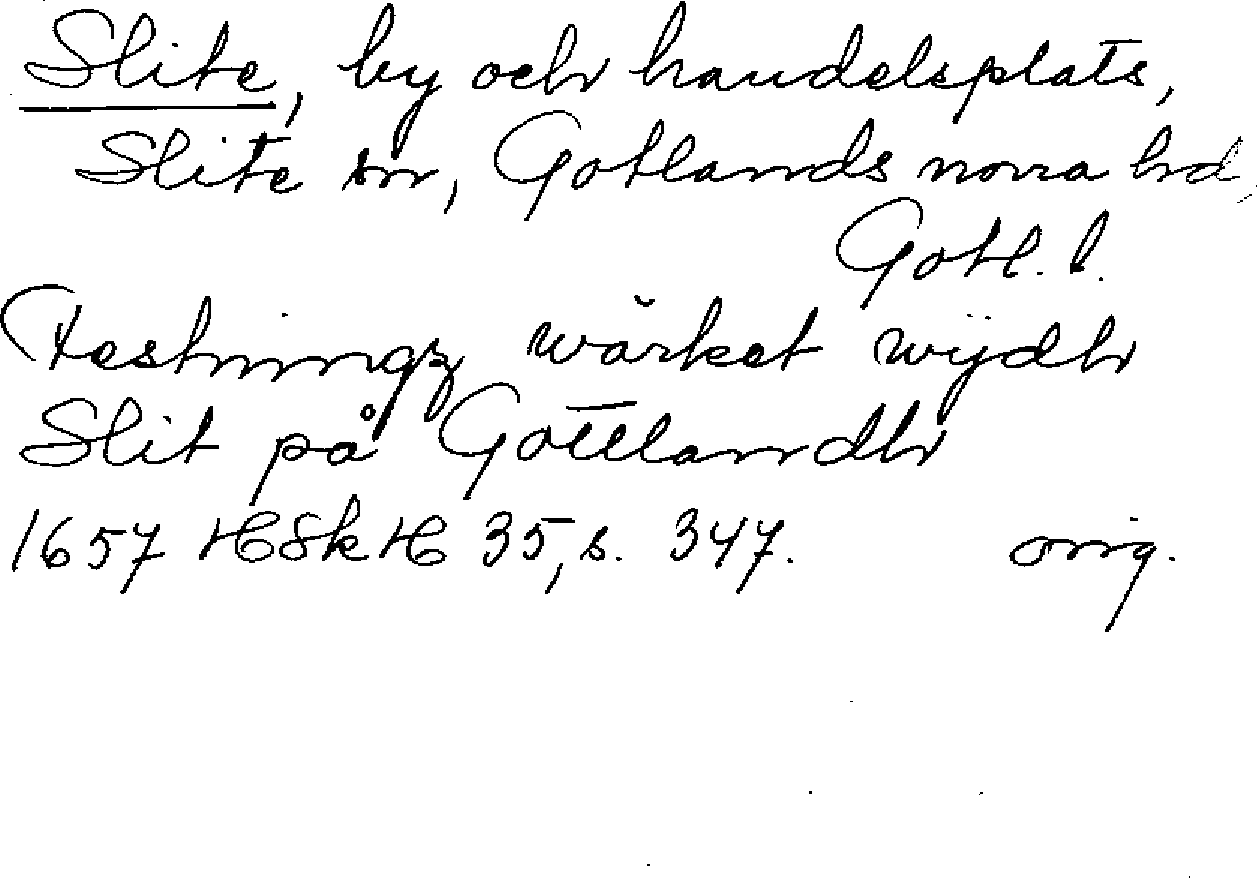 Slite, by och handelsplats,
Slite sn, Gotlands norra hd,
Gotl. l.
Festningz wärket wijdh
Slit på Gottlandh
1657 HSkH 35, s. 347. orig.